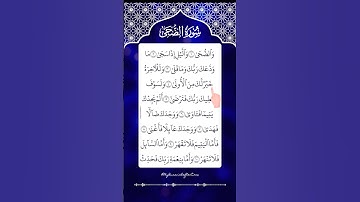 سُورَةُ الضُّحَىٰ
وَٱلضُّحَىٰ ١ وَٱلَّيْلِ إِذَا سَجَىٰ ٢ مَا
وَدَّعَكَ رَبُّكَ وَمَا قَلَىٰ ٣ وَلَلْـَٔاخِرَةُ
خَيْرٌ لَّكَ مِنَ ٱلْأُولَىٰ ٤ وَلَسَوْفَ
يُعْطِيكَ رَبُّكَ فَتَرْضَىٰ ٥ أَلَمْ يَجِدْكَ
يَتِيمًا فَـَٔاوَىٰ ٦ وَوَجَدَكَ ضَآلًّا
فَهَدَىٰ ٧ وَوَجَدَكَ عَآئِلًا فَأَغْنَىٰ ٨
فَأَمَّا ٱلْيَتِيمَ فَلَا تَقْهَرْ ٩ وَأَمَّا ٱلسَّآئِلَ
فَلَا تَنْهَرْ ١٠ وَأَمَّا بِنِعْمَةِ رَبِّكَ فَحَدِّثْ